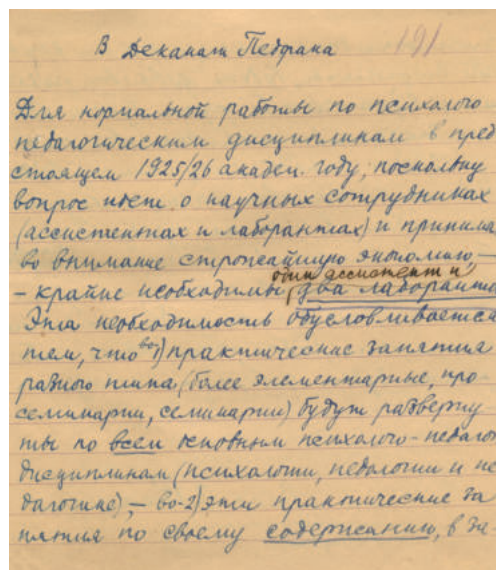 В Деканат Педфака 191
Для нормальной работы по психолого
педагогическим дисциплинам в пред
стоящем 1925/26 академ. году, поскольку
вопрос идет о научных сотрудниках
(ассистентах и лаборантах) и принима
во внимание строжайшую экономию, —
один ассистент и
- крайне необходимы два лаборанта
Эта необходимость обусловливается
тем, что во 1) практические занятия
разного типа (более элементарные, про
семинарии, семинарии) будут разверну
ты по всем основным психолого-педагог
дисциплинам (психологии, педологии и пе
дагогике), — во-2) эти практические за
нятия по своему содержанию, в за-